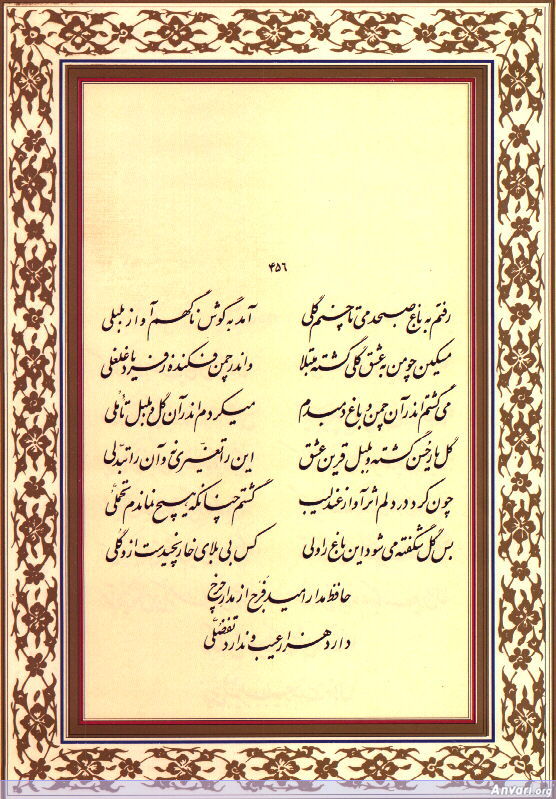 ۴۵۶
رفتم به باغ صبحدمی تا چنم گلی آمد به گوش ناگهم آواز بلبلی
مسکین چو من به عشق گلی گشته مبتلا واندر چمن فکنده ز فریاد غلغلی
می گشتم اندر آن چمن و باغ دمبدم میکردم اندر آن گل و بلبل تأملی
گل یار حسن گشته و بلبل قرین عشق این را تغیری نه و آن را تبدلی
چون کرد در دلم اثر آواز عندلیب گشتم چنانکه هیچ نماندم تحملی
بس گل شگفته می شود این باغ را ولی کس بی بلای خار نچیدست ازو گلی
حافظ مدار امید فرح از مدار چرخ
دارد هزار عیب و ندارد تفضلی
Anvari.org